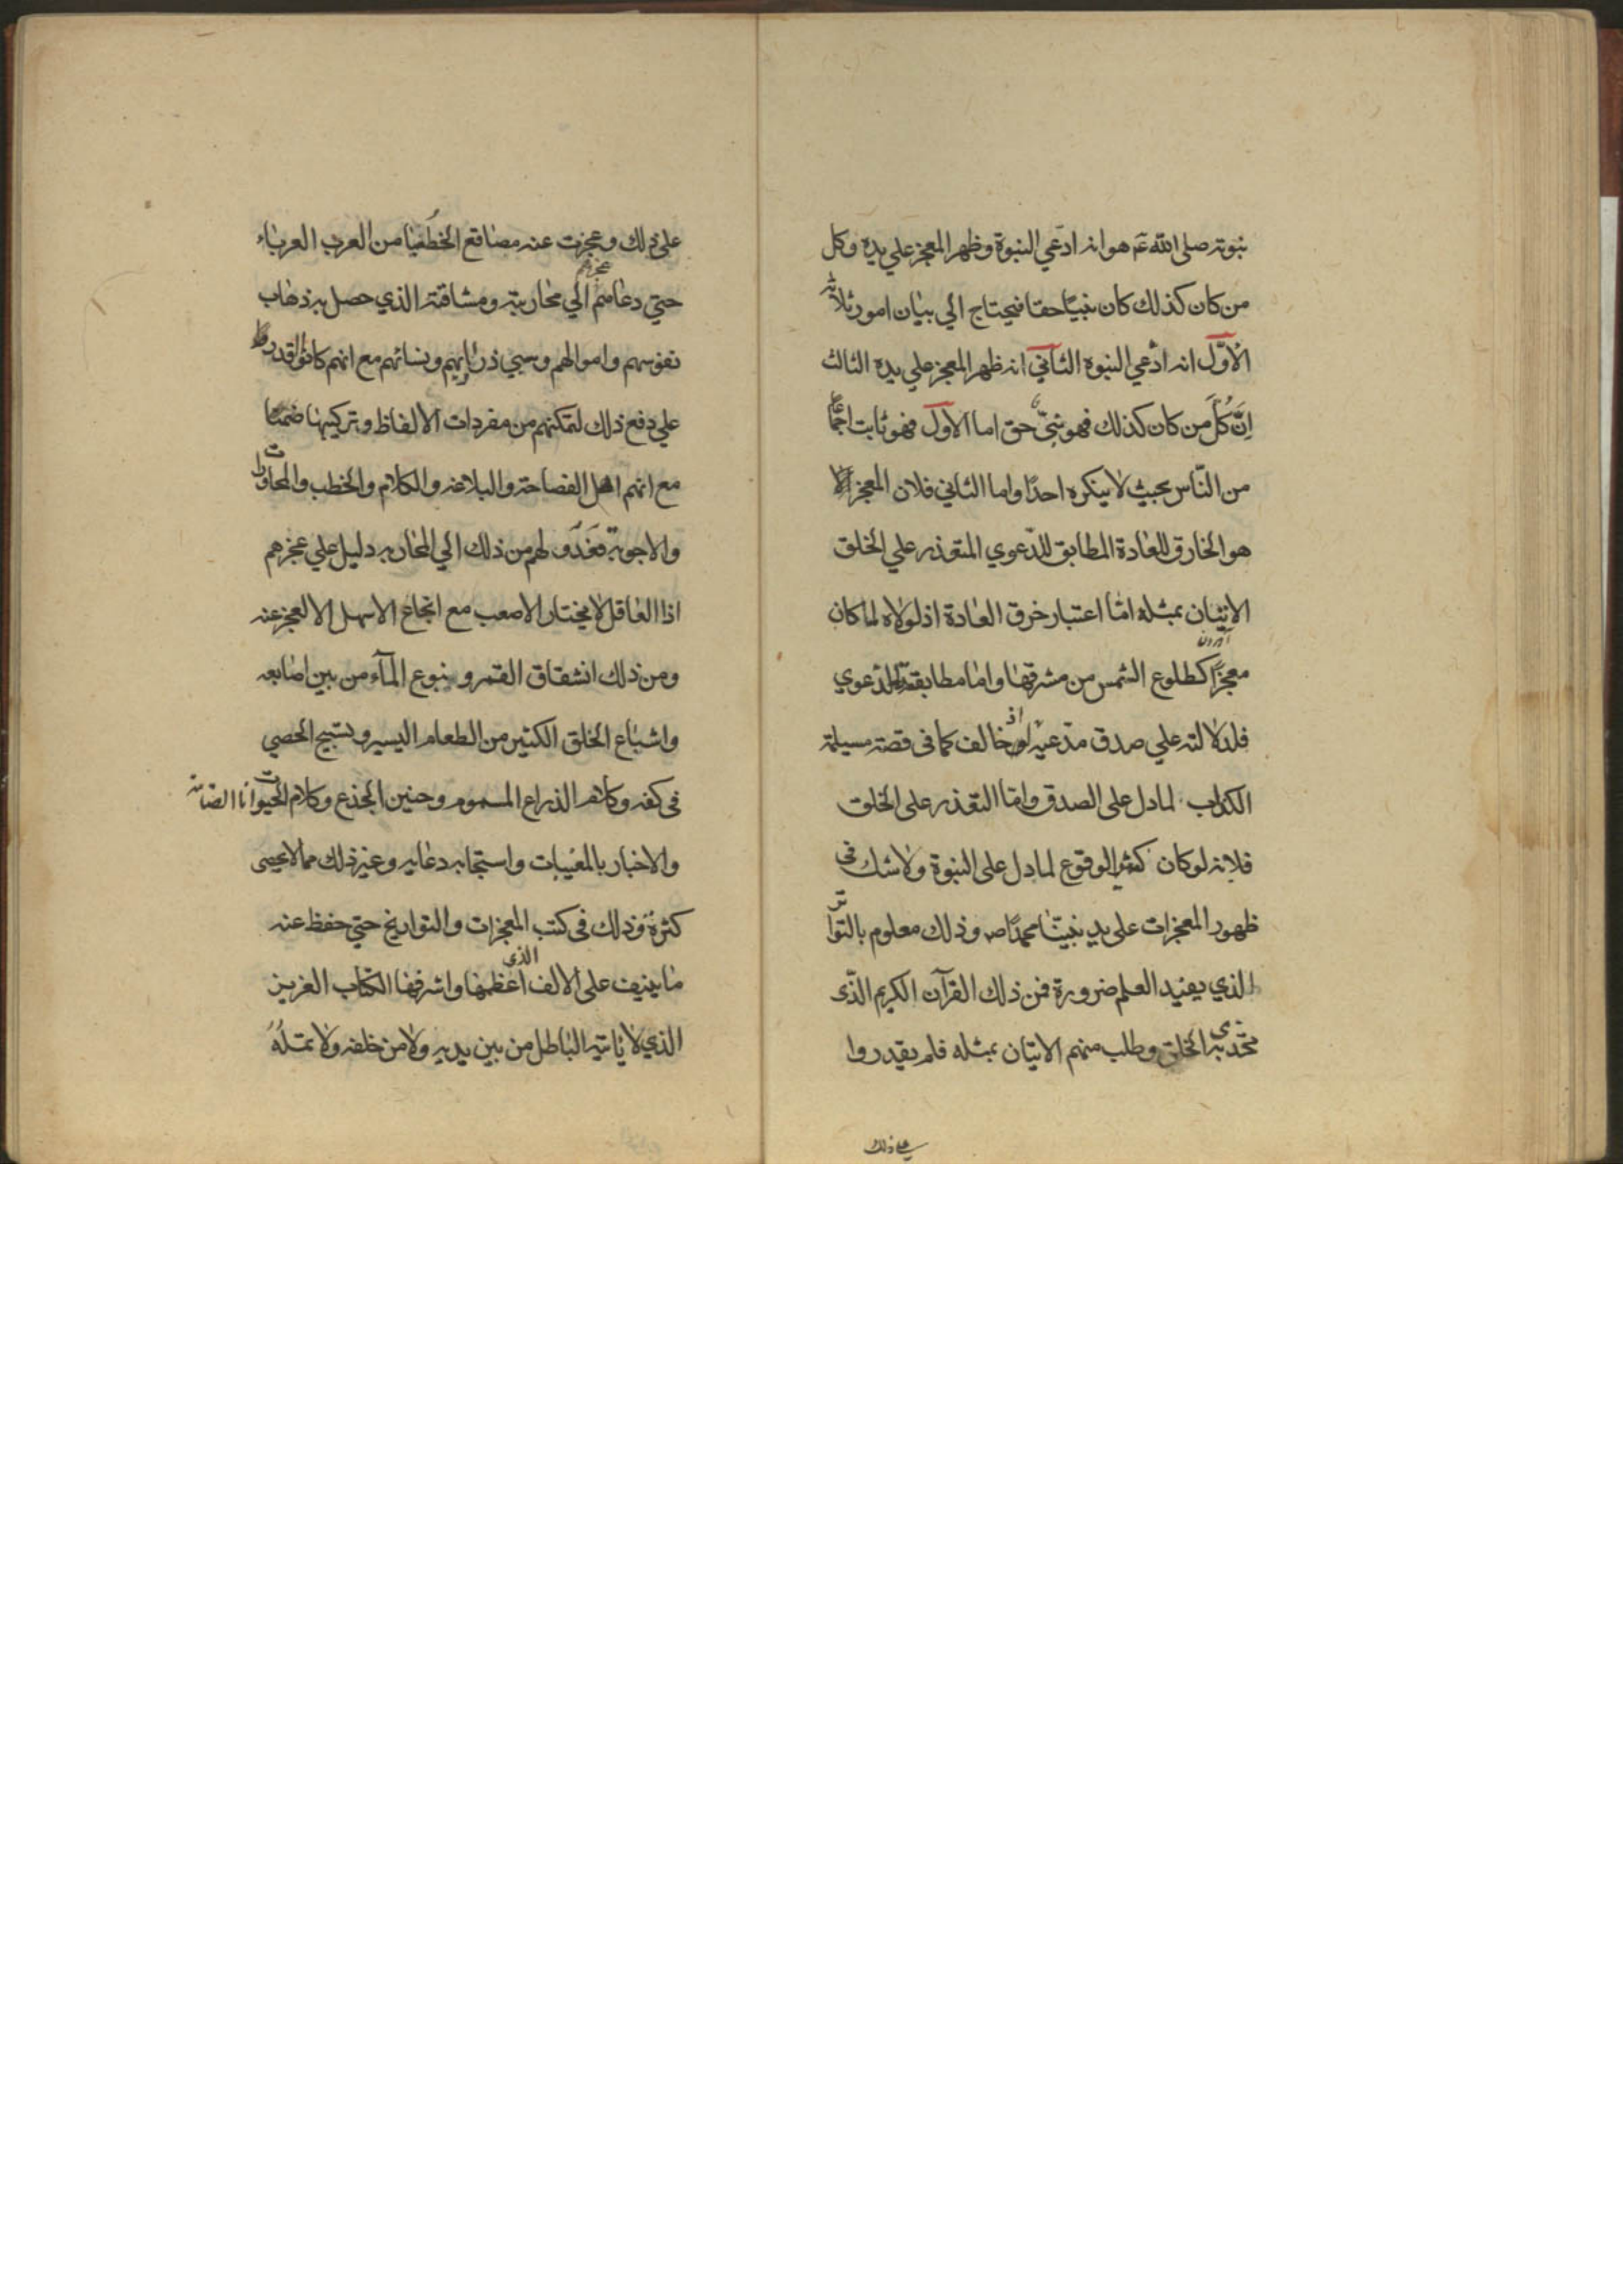 نبوته صلى الله عم هو انه ادّعي النبوة وظهر المعجز علي يده وكل
من كان كذلك كان نبيّا حقا فيحتاج الي بيان امور ثلاثة
الاوّل انه ادّعي النبوه الثاني انه ظهر المعجز علي يده الثالث
اِنَّ كُلَّ من كان كذلك فهو نبيّ حق اما الاول فهو ثابت اجماعا
من النّاس بحيث لا ينكره احدًا واما الثاني فلان المعجز
هو الخارق للعادة المطابق للدّعوي المتعذر علي الخلق
الاتيان بمثله امّا اعتبار خرق العادة اذ لولاه لما كان
معجزًا كطلوع الشمس من مشرقها واما مطابقته للدعوي
فلدلالته علي صدق مدّعيه اذ لو خالف كما فى قصة مسيلمة
الكذاب لما دل على الصدق وامّا التعذر على الخلق
فلانه لو كان كثير الوقوع لما دل على النبوة ولا شك فى
ظهور المعجزات على يد نبيّنا محمدًا ص وذلك معلوم بالتواتر
الذي يفيد العلم ضرورة فمن ذلك القرآن الكريم الذّى
تحّدى به الخلق وطلب منهم الاتيان بمثله فلم يقدروا
على ذلك
على ذلك وعجزت عنه مصاقع الخطبا من العرب العرباء
حتي دعاهم عجزهم الي محاربته ومشاقته الذي حصل به ذهاب
نفوسهم واموالهم وسبي ذراريهم ونسائهم مع انهم كانوا اقدر
علي دفع ذلك لتمكنهم من مفردات الالفاظ وتركيبها
مع انهم اهل الفصاحة والبلاغه والكلام والخطب والمحاورات
والاجوبة فعَدَو لهم من ذلك الي المحاربه دليل علي عجزهم
اذا العاقل لا يختار الاصعب مع انجاع الاسهل الا لعجز عنه
ومن ذلك انشقاق القمر ونبوع المآء من بين اصابعه
واشباع الخلق الكثير من الطعام اليسير وتسبيح الحصي
فى كفه وكلام الذراع المسموم وحنين الجذع وكلام الحيوانات الصامته
والاخبار بالمغيبات واستجابه دعايه وغير ذلك مما لا يحصى
كثرة وذلك فى كتب المعجزات والتواريخ حتي حفظ عنه
ما ينيف على الالف الذى اعظمها واشرفها الكتاب العزيز
الذي لا ياتيه الباطل من بين يديه ولا من خلفه ولا تمله